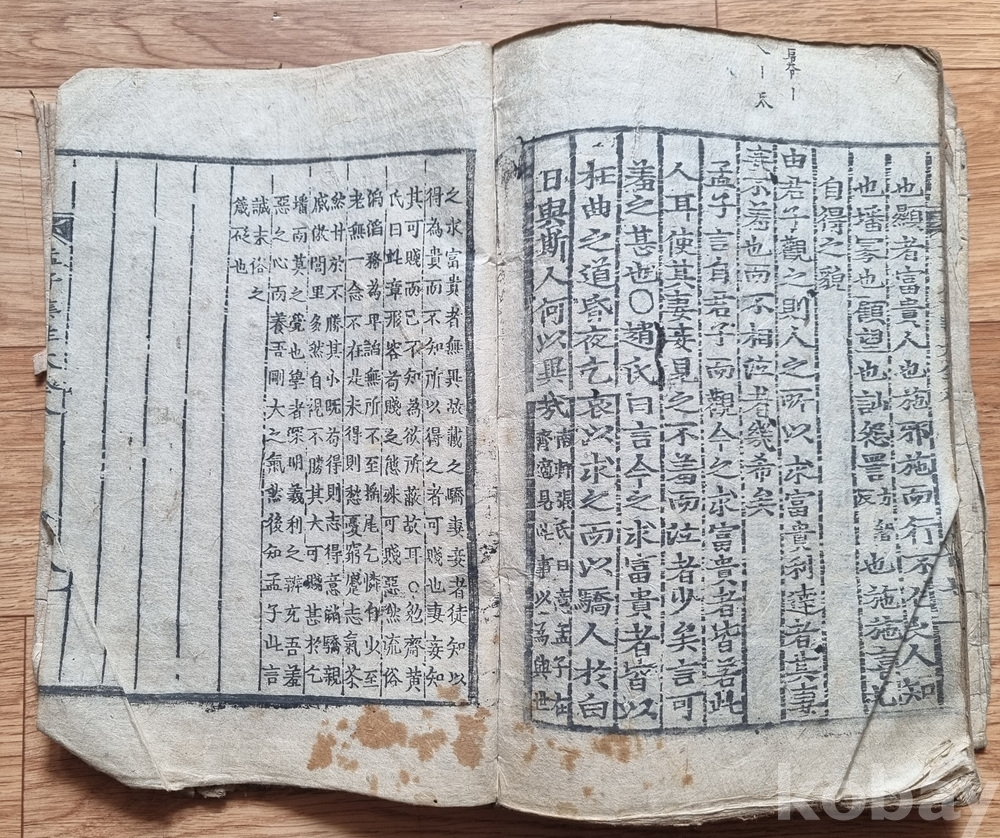 也顯者富貴人也施邪施而行不使良人知
也墦冢也顧望也訕怨詈也施施喜悅
自得之貌
由君子觀之則人之所以求富貴利達者其妻
妾不羞也而不相泣者幾希矣
孟子言自君子而觀今之求富貴者皆若此
人耳使其妻妾見之不羞而泣者少矣言可
羞之甚也○趙氏曰言今之求富貴者皆以
枉曲之道昏夜乞哀以求之而以驕人於白
日與斯人何以異哉
南軒張氏曰意孟子在
齊適見此事以為與世
之求富貴者無異故之驕妻妾者徒知以
得為貴而不知所以得之者可賤也妻妾知
其可賤而已不知為欲所蔽故耳○勉齋黃
氏曰此章形容苟賤之態殊可賤惡然流俗
滔滔務為卑諂無所不至搖尾乞憐自少至
老無一念不在是未得則愁憂窮蹙志氣苶
然甘於不勝其小既苟得則志得意滿驕親
戚傲閭里然自視不勝其大可賤甚於乞
墦而莫之覺也學者深明義利之辨充吾羞
惡之心而養吾剛大之氣然後知孟子此言
誠末俗之
箴砭也
kobay